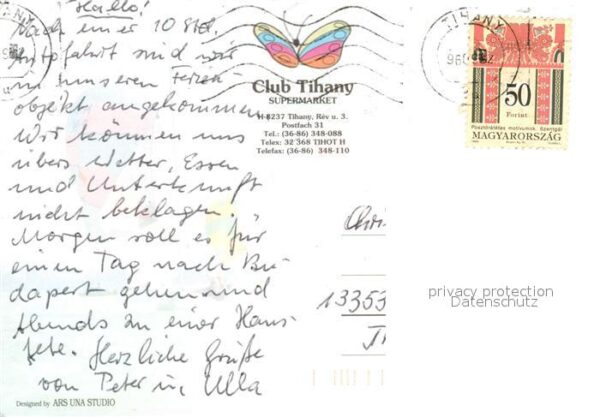 Hallo!
Nach einer 10 Std.
Autofahrt sind wir
in unseren Ferien-
objekt angekommen.
Wir können uns
übers Wetter, Essen
und Unterkunft
nicht beklagen.
Morgen soll es für
einen Tag nach Bu-
dapest gehen und
Abends zu einer Haus-
fete. Herzliche Grüße
von Peter u. Ulla
Designed by ARS UNA STUDIO
Club Tihany
SUPERMARKET
H-8237 Tihany, Rév u. 3.
Postfach 31
Tel.: (36-86) 348-088
Telex: 32 368 TIHOT H
Telefax: (36-86) 348-110
TIHANY
50
Forint
MAGYARORSZÁG
13353
privacy protection
Datenschutz